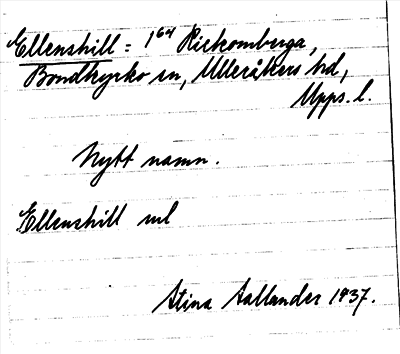 Ellenshill = 1⁶⁴ Rickomberga,
Bondkyrko sn, Ulleråkers hd,
Upps. l.
Nytt namn.
Ellenshill ml
Stina Aallander 1937.